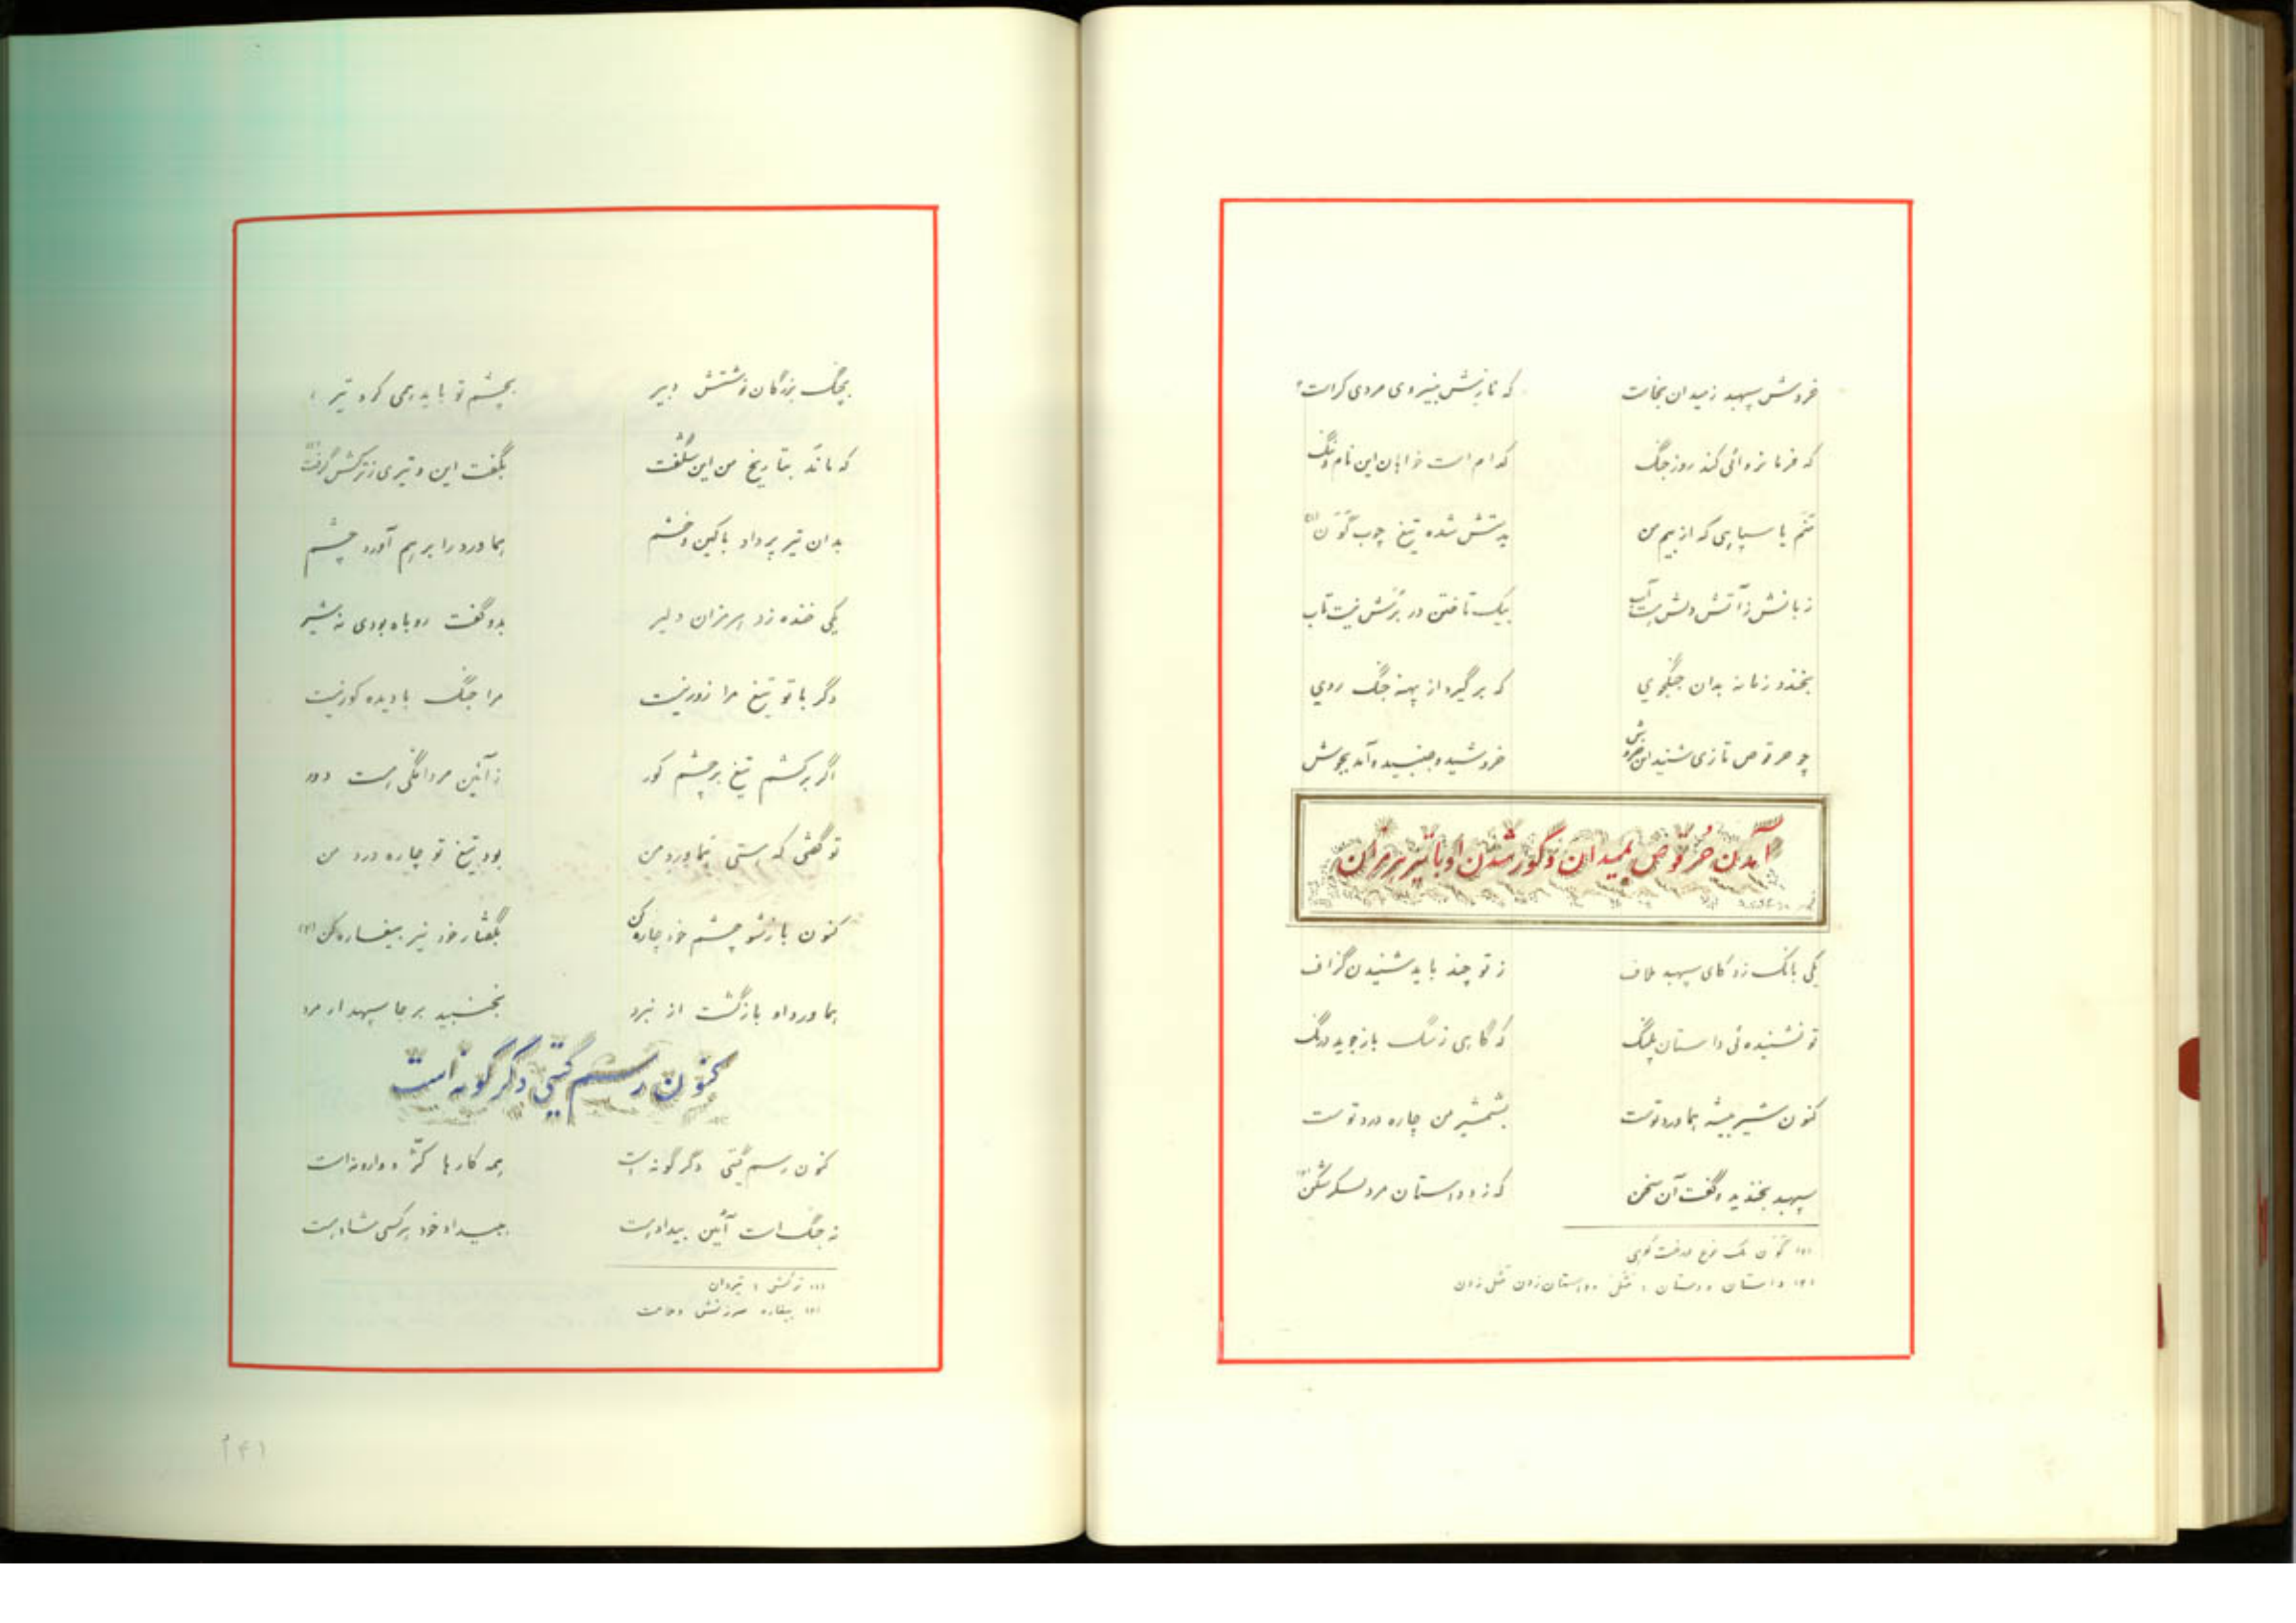 خروش سپهبد ز میدان بخاست که نازش به نیروی مردی کراست؟
که فرمانروائی کند روز جنگ کدام است خواهان این نام و ننگ
منم یا سپاهی که از بیم من بدستش شده تیغ چوب گَوَن (۱)
زبانش ز آتش دلش هست آب بیک تاختن در برش نیست تاب
بخندد زمانه بدان جنگجوی که برگیرد از پهنه جنگ روی
چو حرقوص تازی شنید این خروش خروشید و جنبید و آمد بجوش
آمدن حُرقوص بمیدان و کور شدن او با تیر هرمزان
یکی بانگ زد کای سپهبد ملاف ز تو چند باید شنیدن گزاف
تو نشنیده‌ئی داستان پلنگ که گاهی ز سگ باز جوید درنگ
کنون شیر بیشه هماورد تست بشمشیر من چاره درد تو ست
سپهبد بخندید و گفت آن سخن که زد داستان مرد لشکر شکن (۲)
(۱) گَوَن یک نوع درخت کوهی
(۲) داستان و دستان : مَثَل و داستان زدن مَثَل زدن
بجنگ بزرگان نوشتش دبیر بچشم تو باید همی کرد تیر
که ماند بتاریخ من این شگفت بگفت این و تیری ز ترکش گرفت (۱)
بدان تیر پر داد با کین و خشم هماورد را بر هم آورد چشم
یکی خنده زد هرمزان دلیر بدو گفت روباه بودی نه شیر
دگر با تو تیغ مرا زور نیست مرا جنگ با دیده کور نیست
اگر برکشم تیغ بر چشم کور ز آئین مردانگی هست دور
تو گفتی که هستی هماورد من بود تیغ تو چاره درد من
کنون باز شو چشم خود چاره کن بگفتار خود نیز بیغاره کن (۲)
هماورد او بازگشت از نبرد نجنبید بر جا سپهدار مرد
کنون رسم گیتی دگرگونه است
کنون رسم گیتی دگرگونه است همه کارها کژ و وارونه است
نه جنگ است آئین بیداد هست ببیداد خود هر کسی شاد هست
(۱) ترکش : تیردان
(۲) بیغاره سرزنش و ملامت